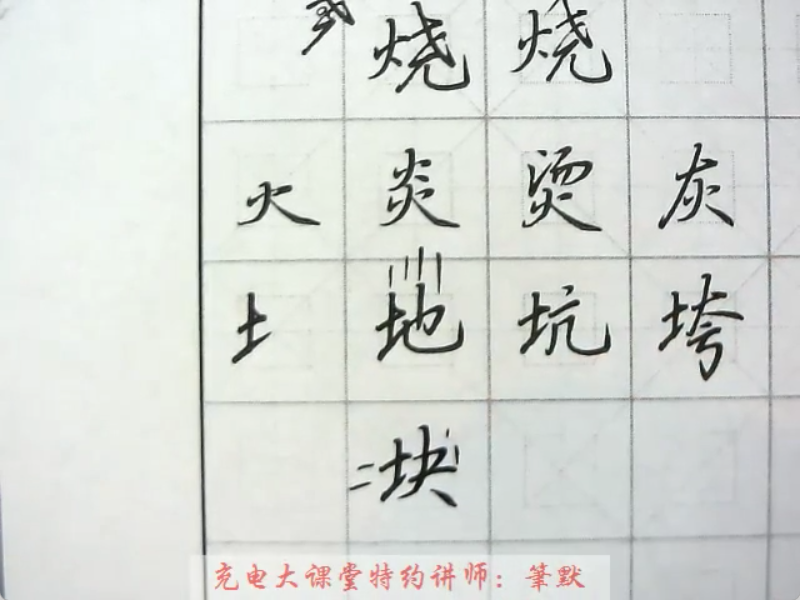 烧 烧
火 炎 烫 灰
土 地 坑 垮
块
充电大课堂特约讲师：筆默